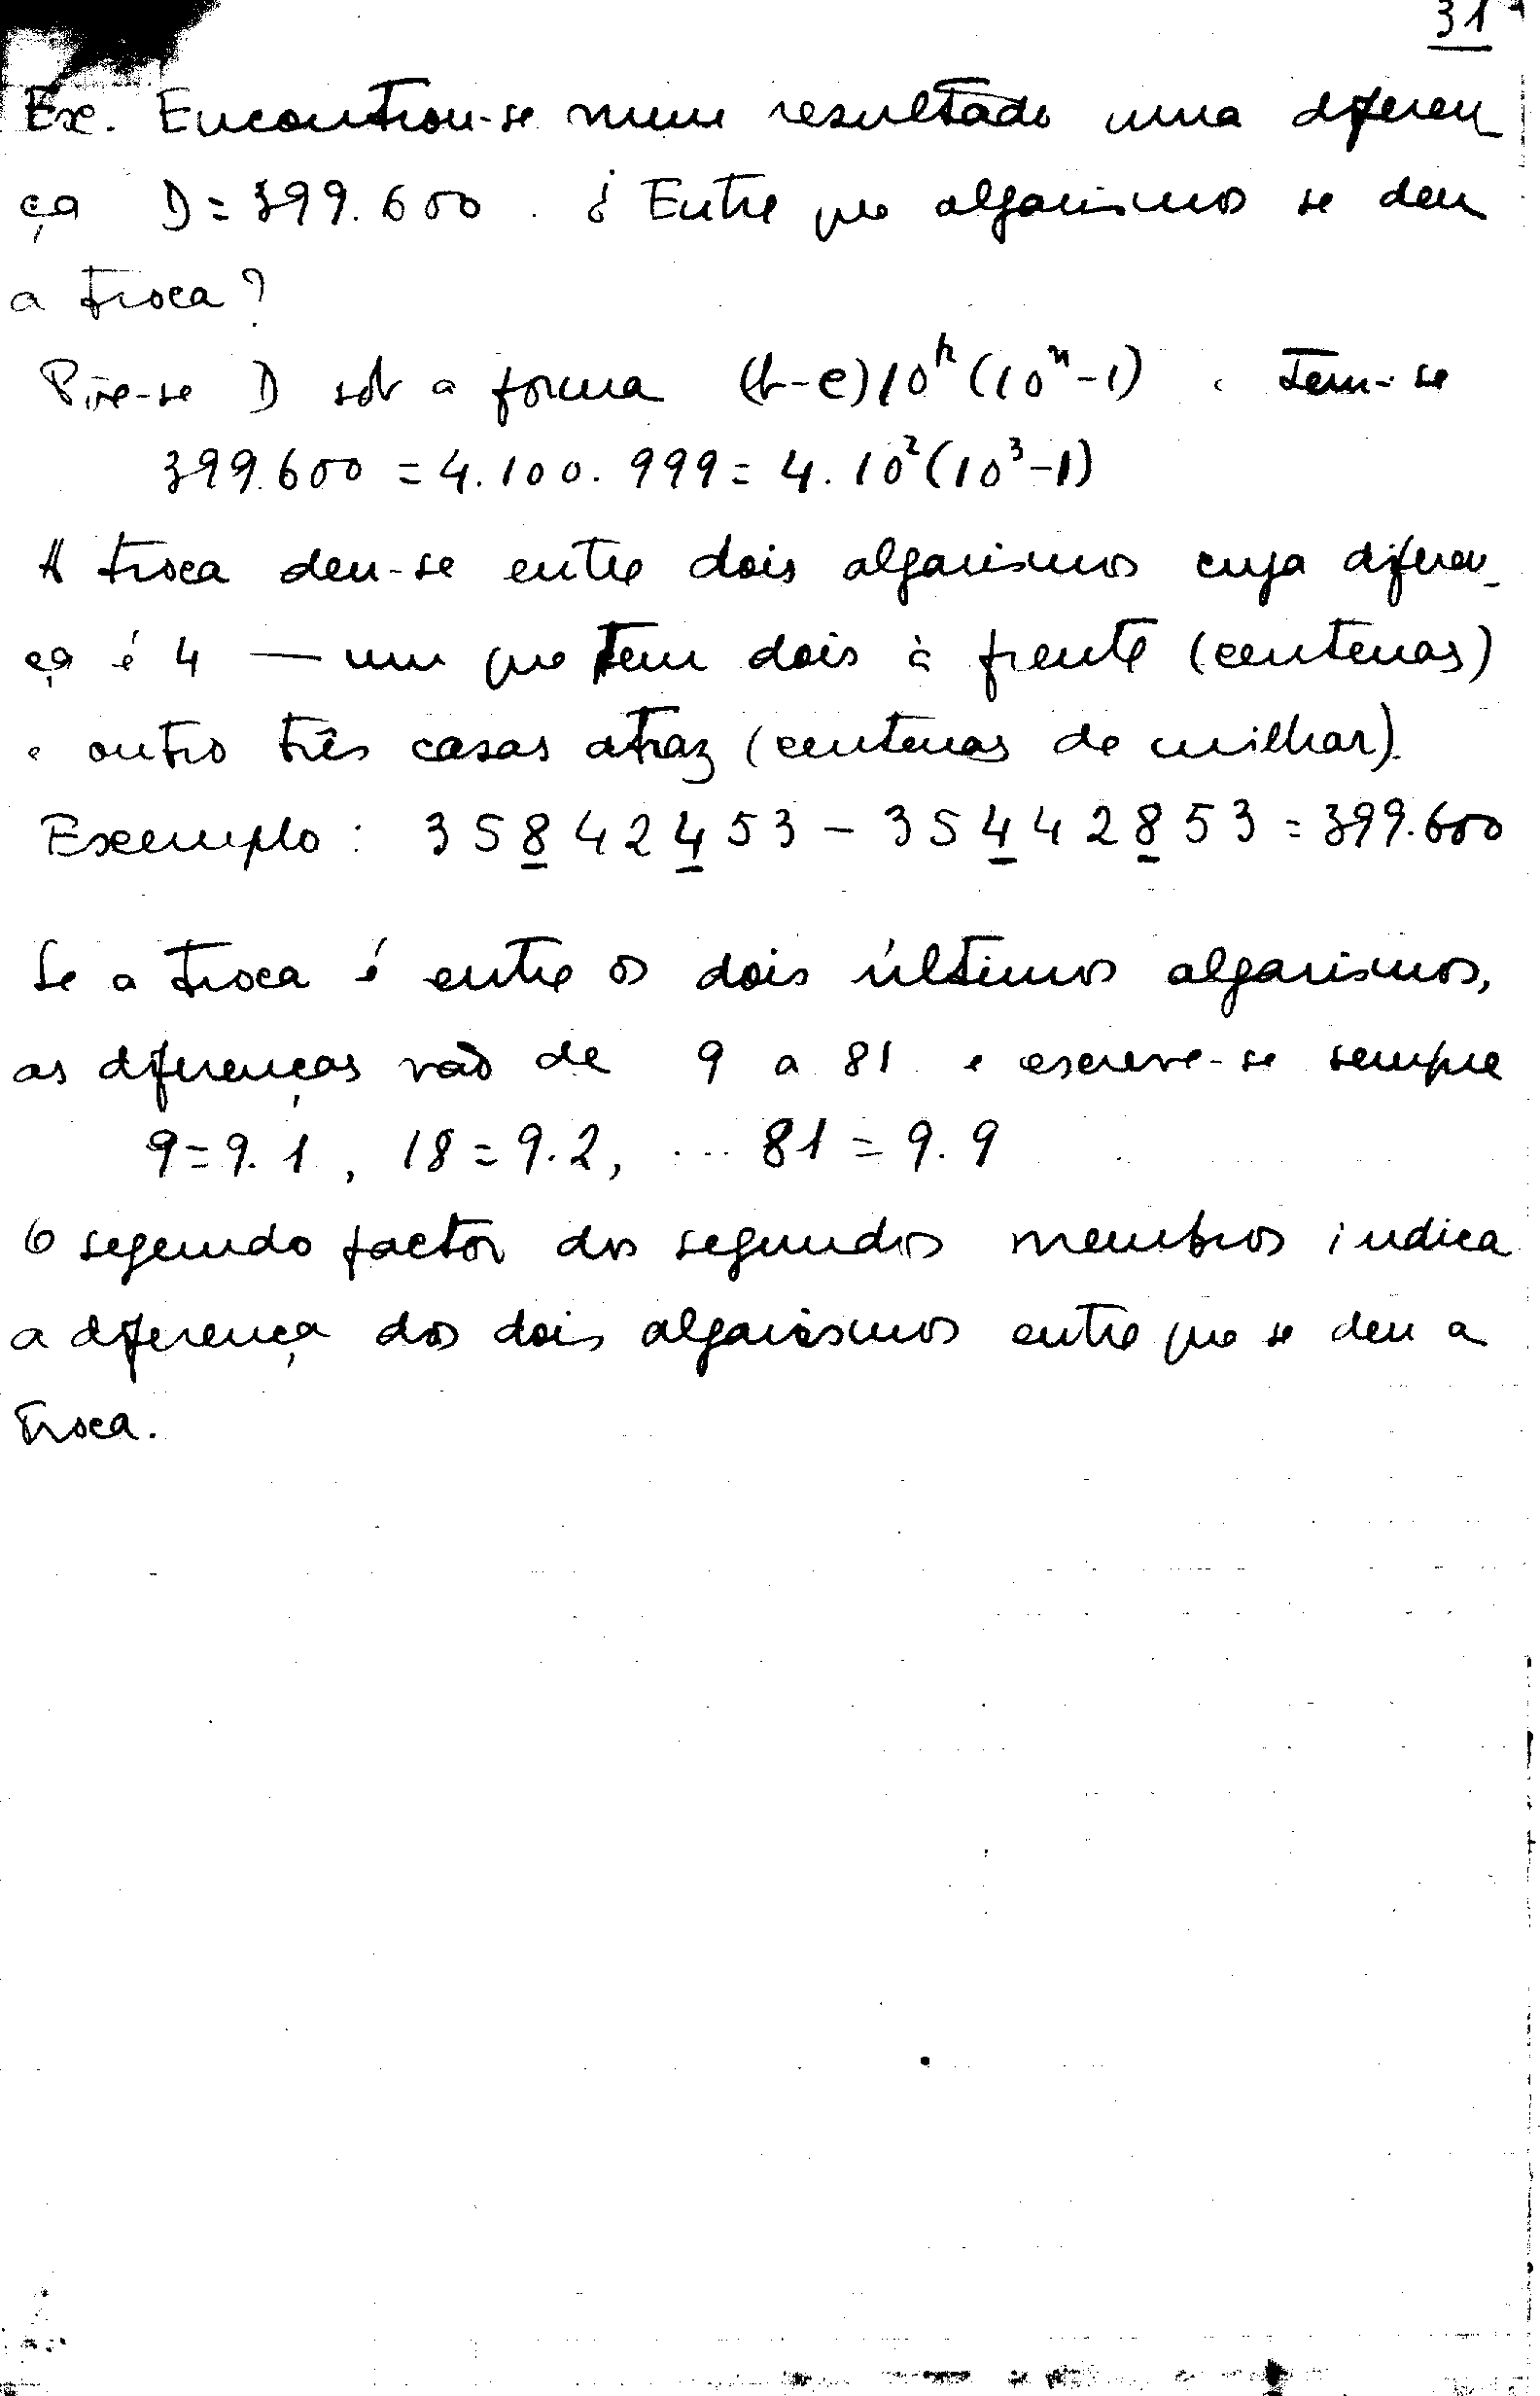 31
Ex. Encontrou-se num resultado uma diferen
ça D = 399.600 . ¿ Entre que algarismos se deu
a troca?
Põe-se D sob a forma (b-c)10^p(10^n-1) . Tem-se
399.600 = 4.100.999 = 4.10²(10³-1)
A troca deu-se entre dois algarismos cuja diferen-
ça é 4 — um que tem dois à frente (centenas)
e outro três casas atraz (centenas de milhar).
Exemplo: 35842453 - 35442853 = 399.600
Se a troca é entre os dois últimos algarismos,
as diferenças vão de 9 a 81 e escreve-se sempre
9=9.1, 18=9.2, ... 81=9.9
O segundo factor dos segundos membros indica
a diferença dos dois algarismos entre que se deu a
troca.